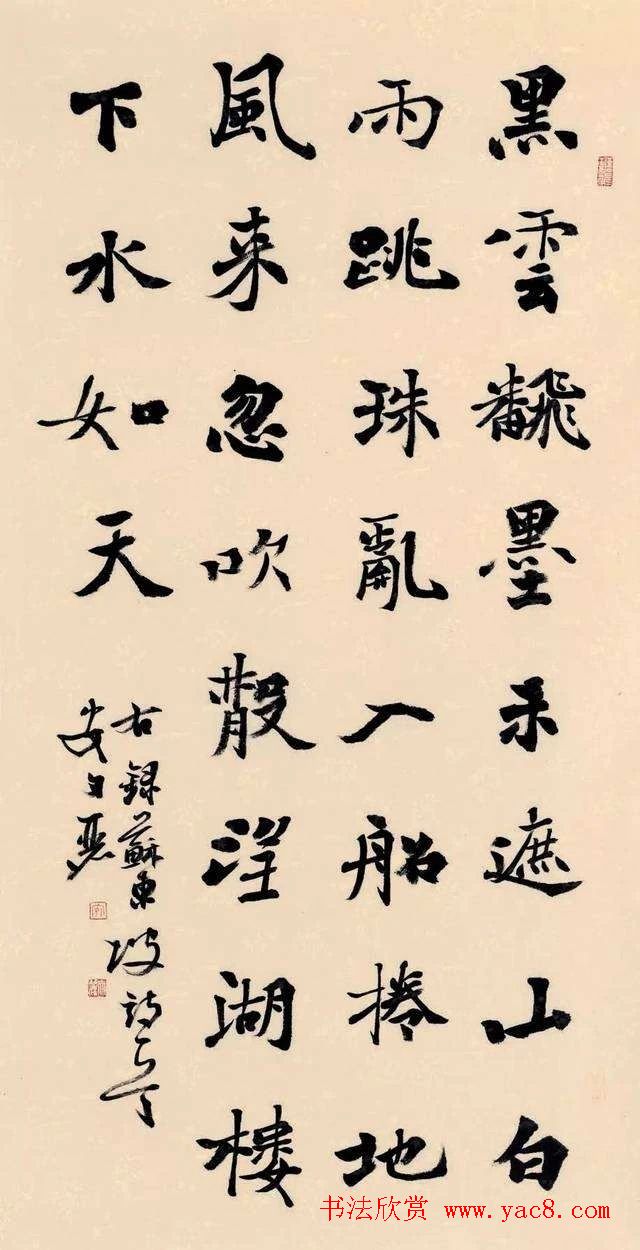 黑雲飜墨未遮山白
雨跳珠亂入船捲地
風来忽吹散望湖樓
下水如天
右録蘇東坡詩
书法欣赏 www.yac8.com